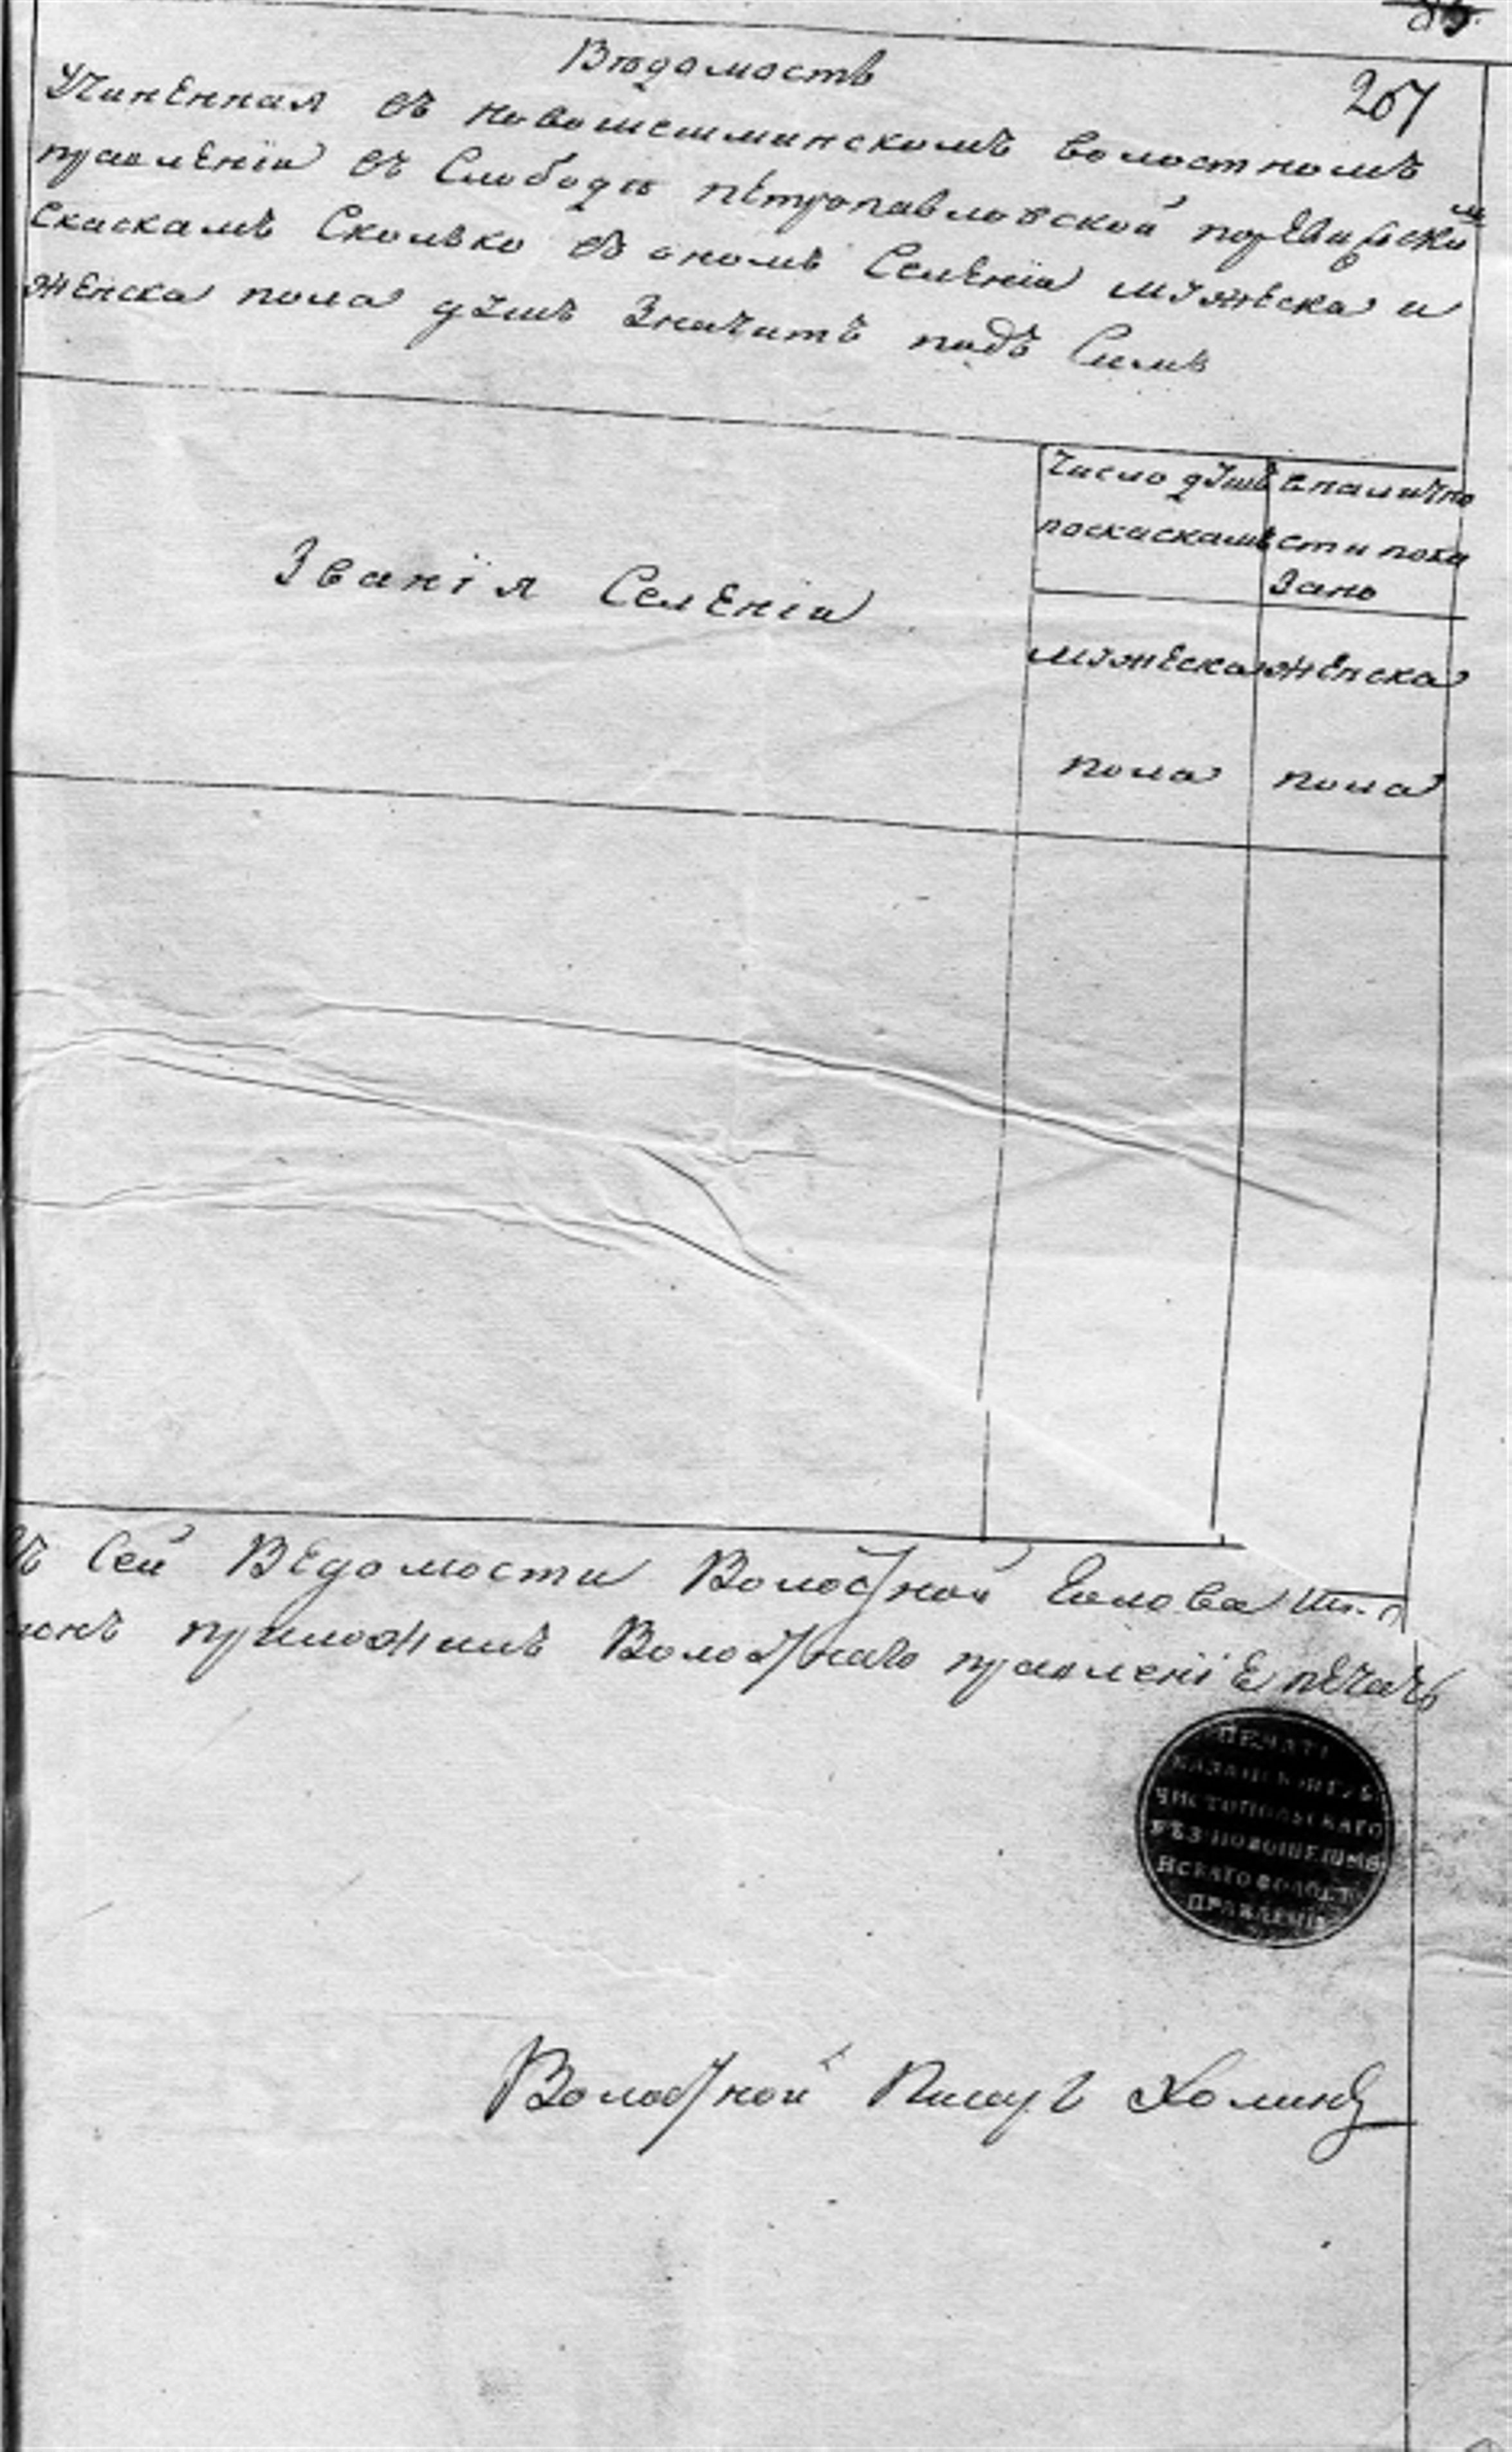 207
Вѣдомость
Учиненная въ новошешминскомъ волостномъ
правленіи въ Слободѣ пѣтропавловской поревизски
м
Скаскамъ Сколько въ ономъ Селеніи мужеска и
женска пола душъ Значитъ подъ Симъ
Число душъ
поскаскамъ
вналично
сти пока
зано
Званія Селеніи
мужеска женска
пола пола
Сей Ведомости Волостной Голова
приложилъ Волостнаго правленіе печать
ПЕЧАТЬ
КАЗАНСКОЙ ГУБ
ЧИСТОПОЛЬСКАГО
УЕЗ НОВОШЕШМИ
НСКАГО ВОЛОСТ
ПРАВЛЕНІЯ
Волостной Писарь Холинъ